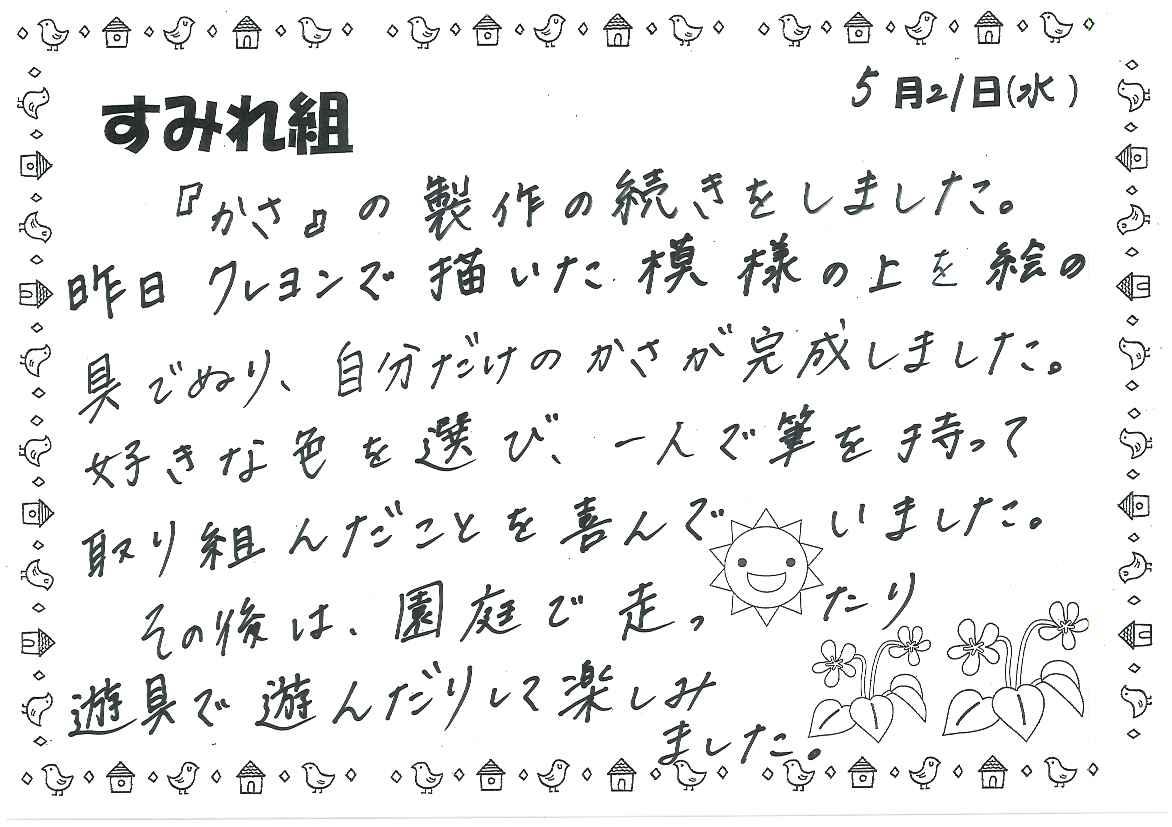 5月21日(水)
すみれ組
『かさ』の製作の続きをしました。
昨日クレヨンで描いた模様の上を絵の
具でぬり、自分だけのかさが完成しました。
好きな色を選び、一人で筆を持って
取り組んだことを喜んでいました。
その後は、園庭で走ったり
遊具で遊んだりして楽しみ
ました。